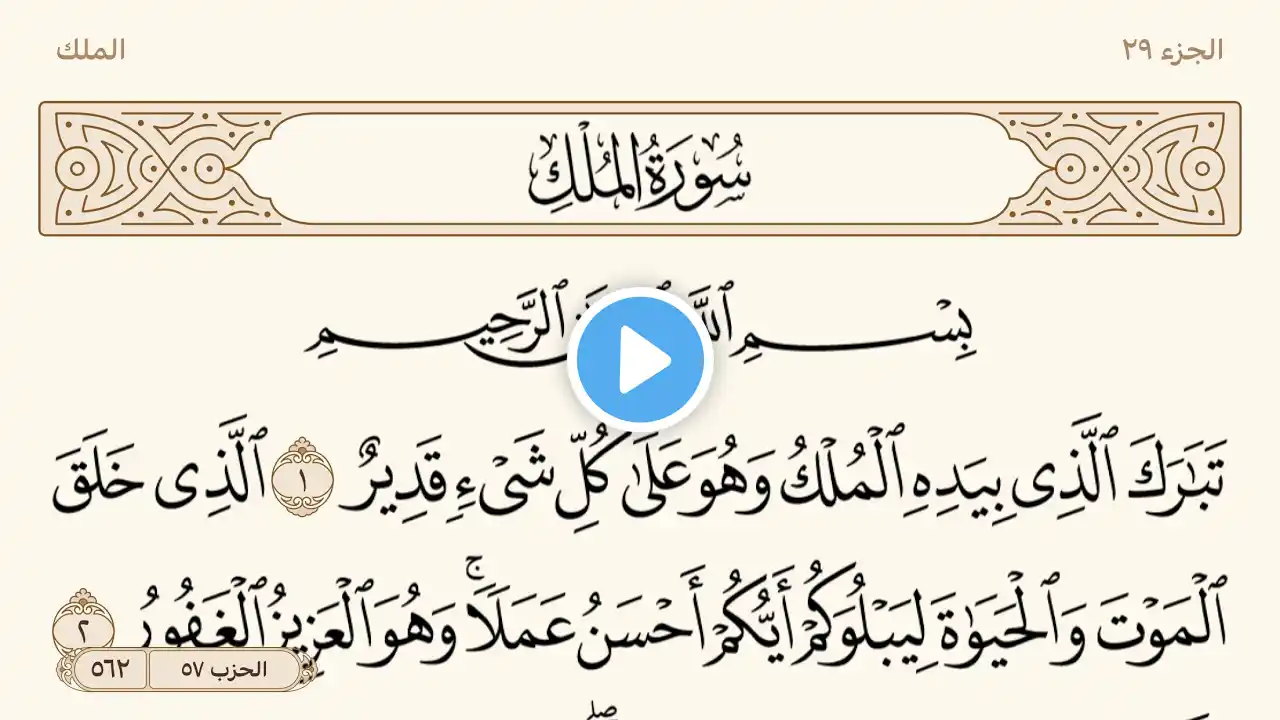 الجزء ٢٩
الملك
سُورَةُ المُلْكِ
بِسْمِ ٱلرَّحِيمِ
تَبَٰرَكَ ٱلَّذِى بِيَدِهِ ٱلْمُلْكُ وَهُوَ عَلَىٰ كُلِّ شَىْءٍ قَدِيرٌ ١ ٱلَّذِى خَلَقَ
ٱلْمَوْتَ وَٱلْحَيَوٰةَ لِيَبْلُوَكُمْ أَيُّكُمْ أَحْسَنُ عَمَلًا ۚ وَهُوَ ٱلْعَزِيزُ ٱلْغَفُورُ ٢
الحزب ٥٧
٥٦٢